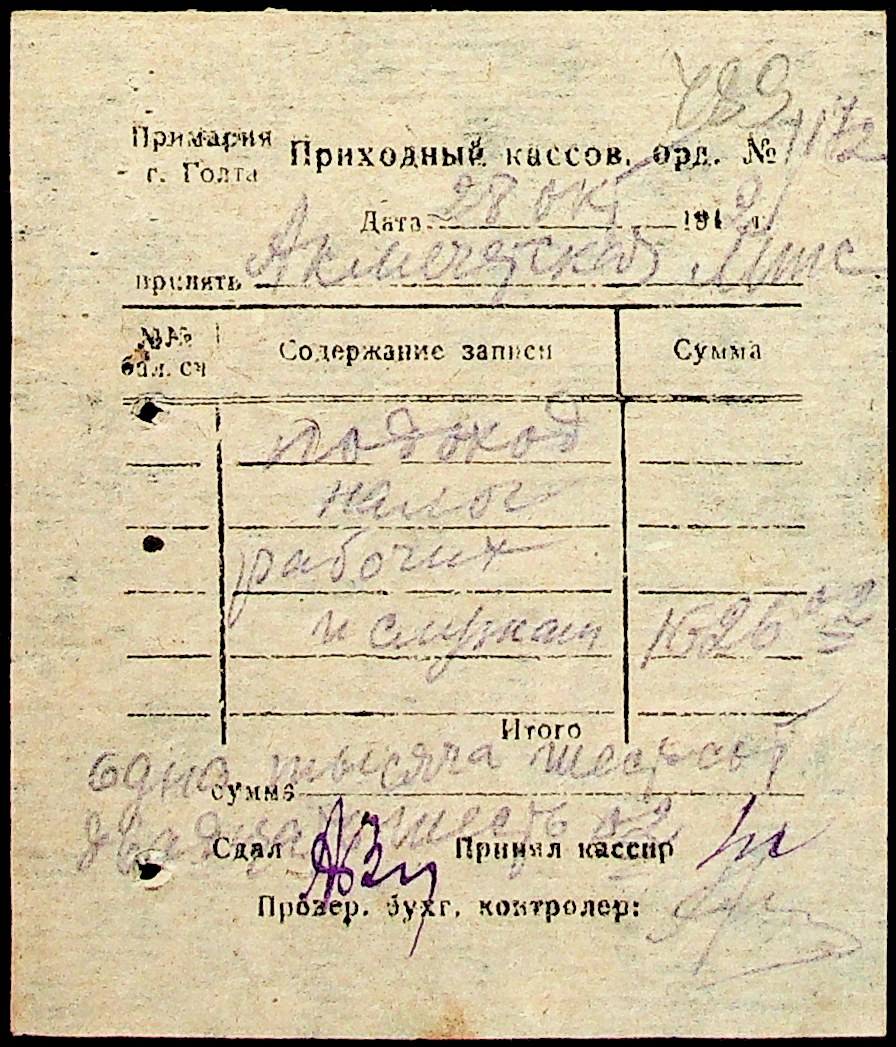 489
Примария
г. Голта
Приходный кассов. орд. № 1172
Дата 28 окт 1942 г.
принять Акмечетская Мтс
№№ бал. сч
Содержание записи
Сумма
подоход
налог
рабочих
и служащ 1626 02
Итого
сумма одна тысяча шестьсот
двадцать шесть 02
Сдал
Принял кассир
Провер. бухг. контролер: